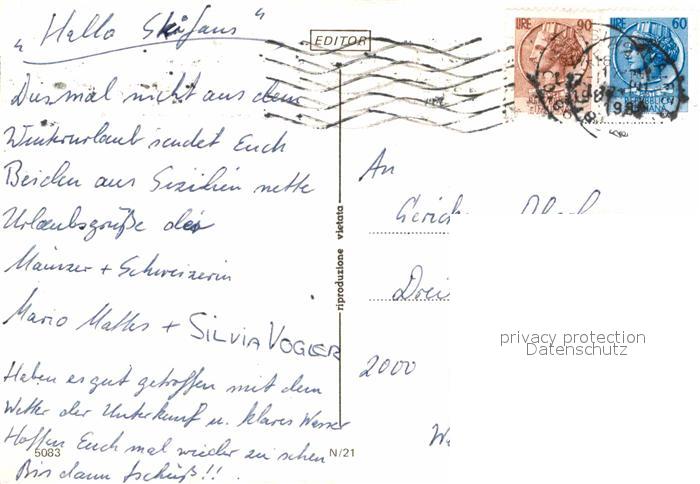 "Hallo Skifans"
Diesmal nicht aus dem
Winterurlaub sendet Euch
Beiden aus Sizilien nette
Urlaubsgrüße der
Mainzer + Schweizerin
Mario Mattes + SILVIA VOGLER
Haben es gut getroffen mit dem
Wetter der Unterkunft u. klares Wasser
Hoffen Euch mal wieder zu sehen
Bis dann tschüß!!
5083
N/21
EDITOR
riproduzione vietata
LIRE 90
LIRE 60
An
Drei
2000
privacy protection
Datenschutz